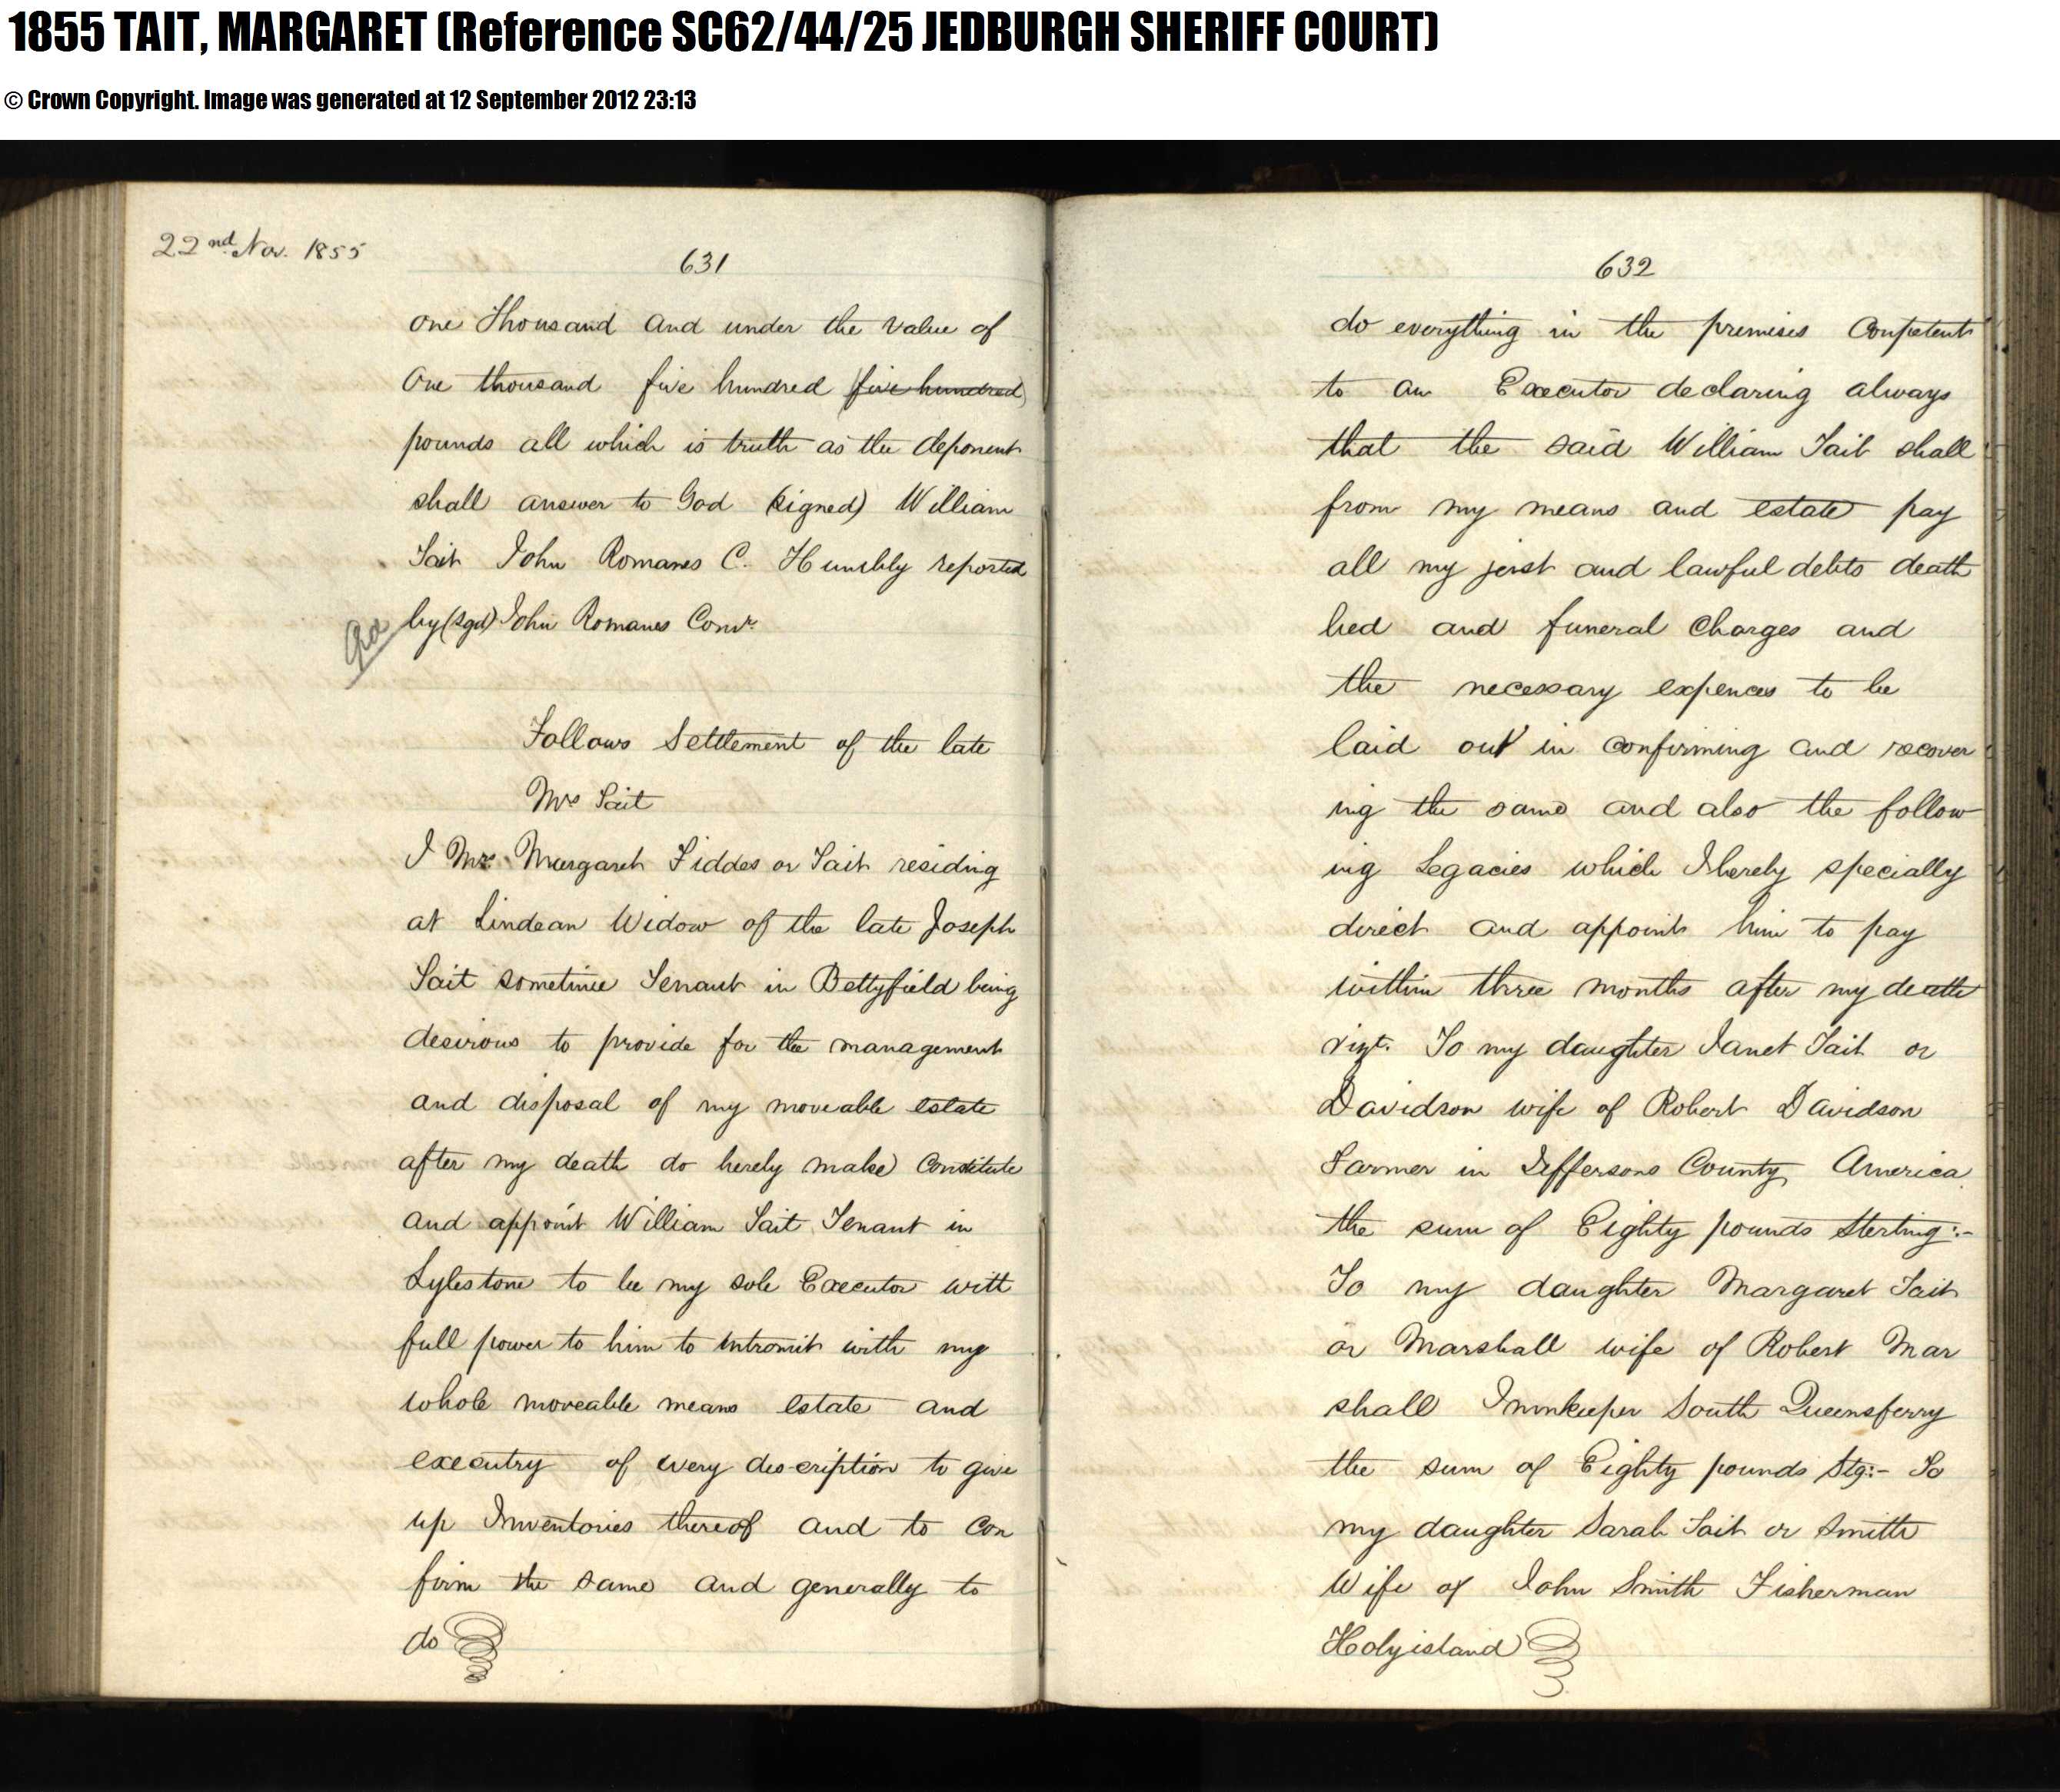 1855 TAIT, MARGARET (Reference SC62/44/25 JEDBURGH SHERIFF COURT)
© Crown Copyright. Image was generated at 12 September 2012 23:13
22nd. Nov. 1855
631
one Thousand and under the value of
One thousand five hundred (five hundred)
pounds all which is truth as the deponent
shall answer to God (signed) William
Tait John Romanes C. Humbly reported
by (sgd) John Romanes Comr.
Follows Settlement of the late
Mrs Tait
I Mrs Margaret Fiddes or Tait residing
at Lindean Widow of the late Joseph
Tait sometime Tenant in Bettyfield being
desirous to provide for the management
and disposal of my moveable estate
after my death do hereby make Constitute
and appoint William Tait Tenant in
Lylestone to be my sole Executor with
full power to him to intromit with my
whole moveable means estate and
executry of every description to give
up Inventories thereof and to Con
firm the same and generally to
do
632
do everything in the premises Competent
to an Executor declaring always
that the said William Tait shall
from my means and estate pay
all my just and lawful debts death
bed and funeral Charges and
the necessary expences to be
laid out in confirming and recover
ing the same and also the follow
ing Legacies which I hereby specially
direct and appoint him to pay
within three months after my death
vizt. To my daughter Janet Tait or
Davidson wife of Robert Davidson
Farmer in Jeffersons County America
the sum of Eighty pounds Sterling:-
To my daughter Margaret Tait
or Marshall wife of Robert Mar
shall Innkeeper South Queensferry
the sum of Eighty pounds Stg:- To
my daughter Sarah Tait or Smith
Wife of John Smith Fisherman
Holyisland